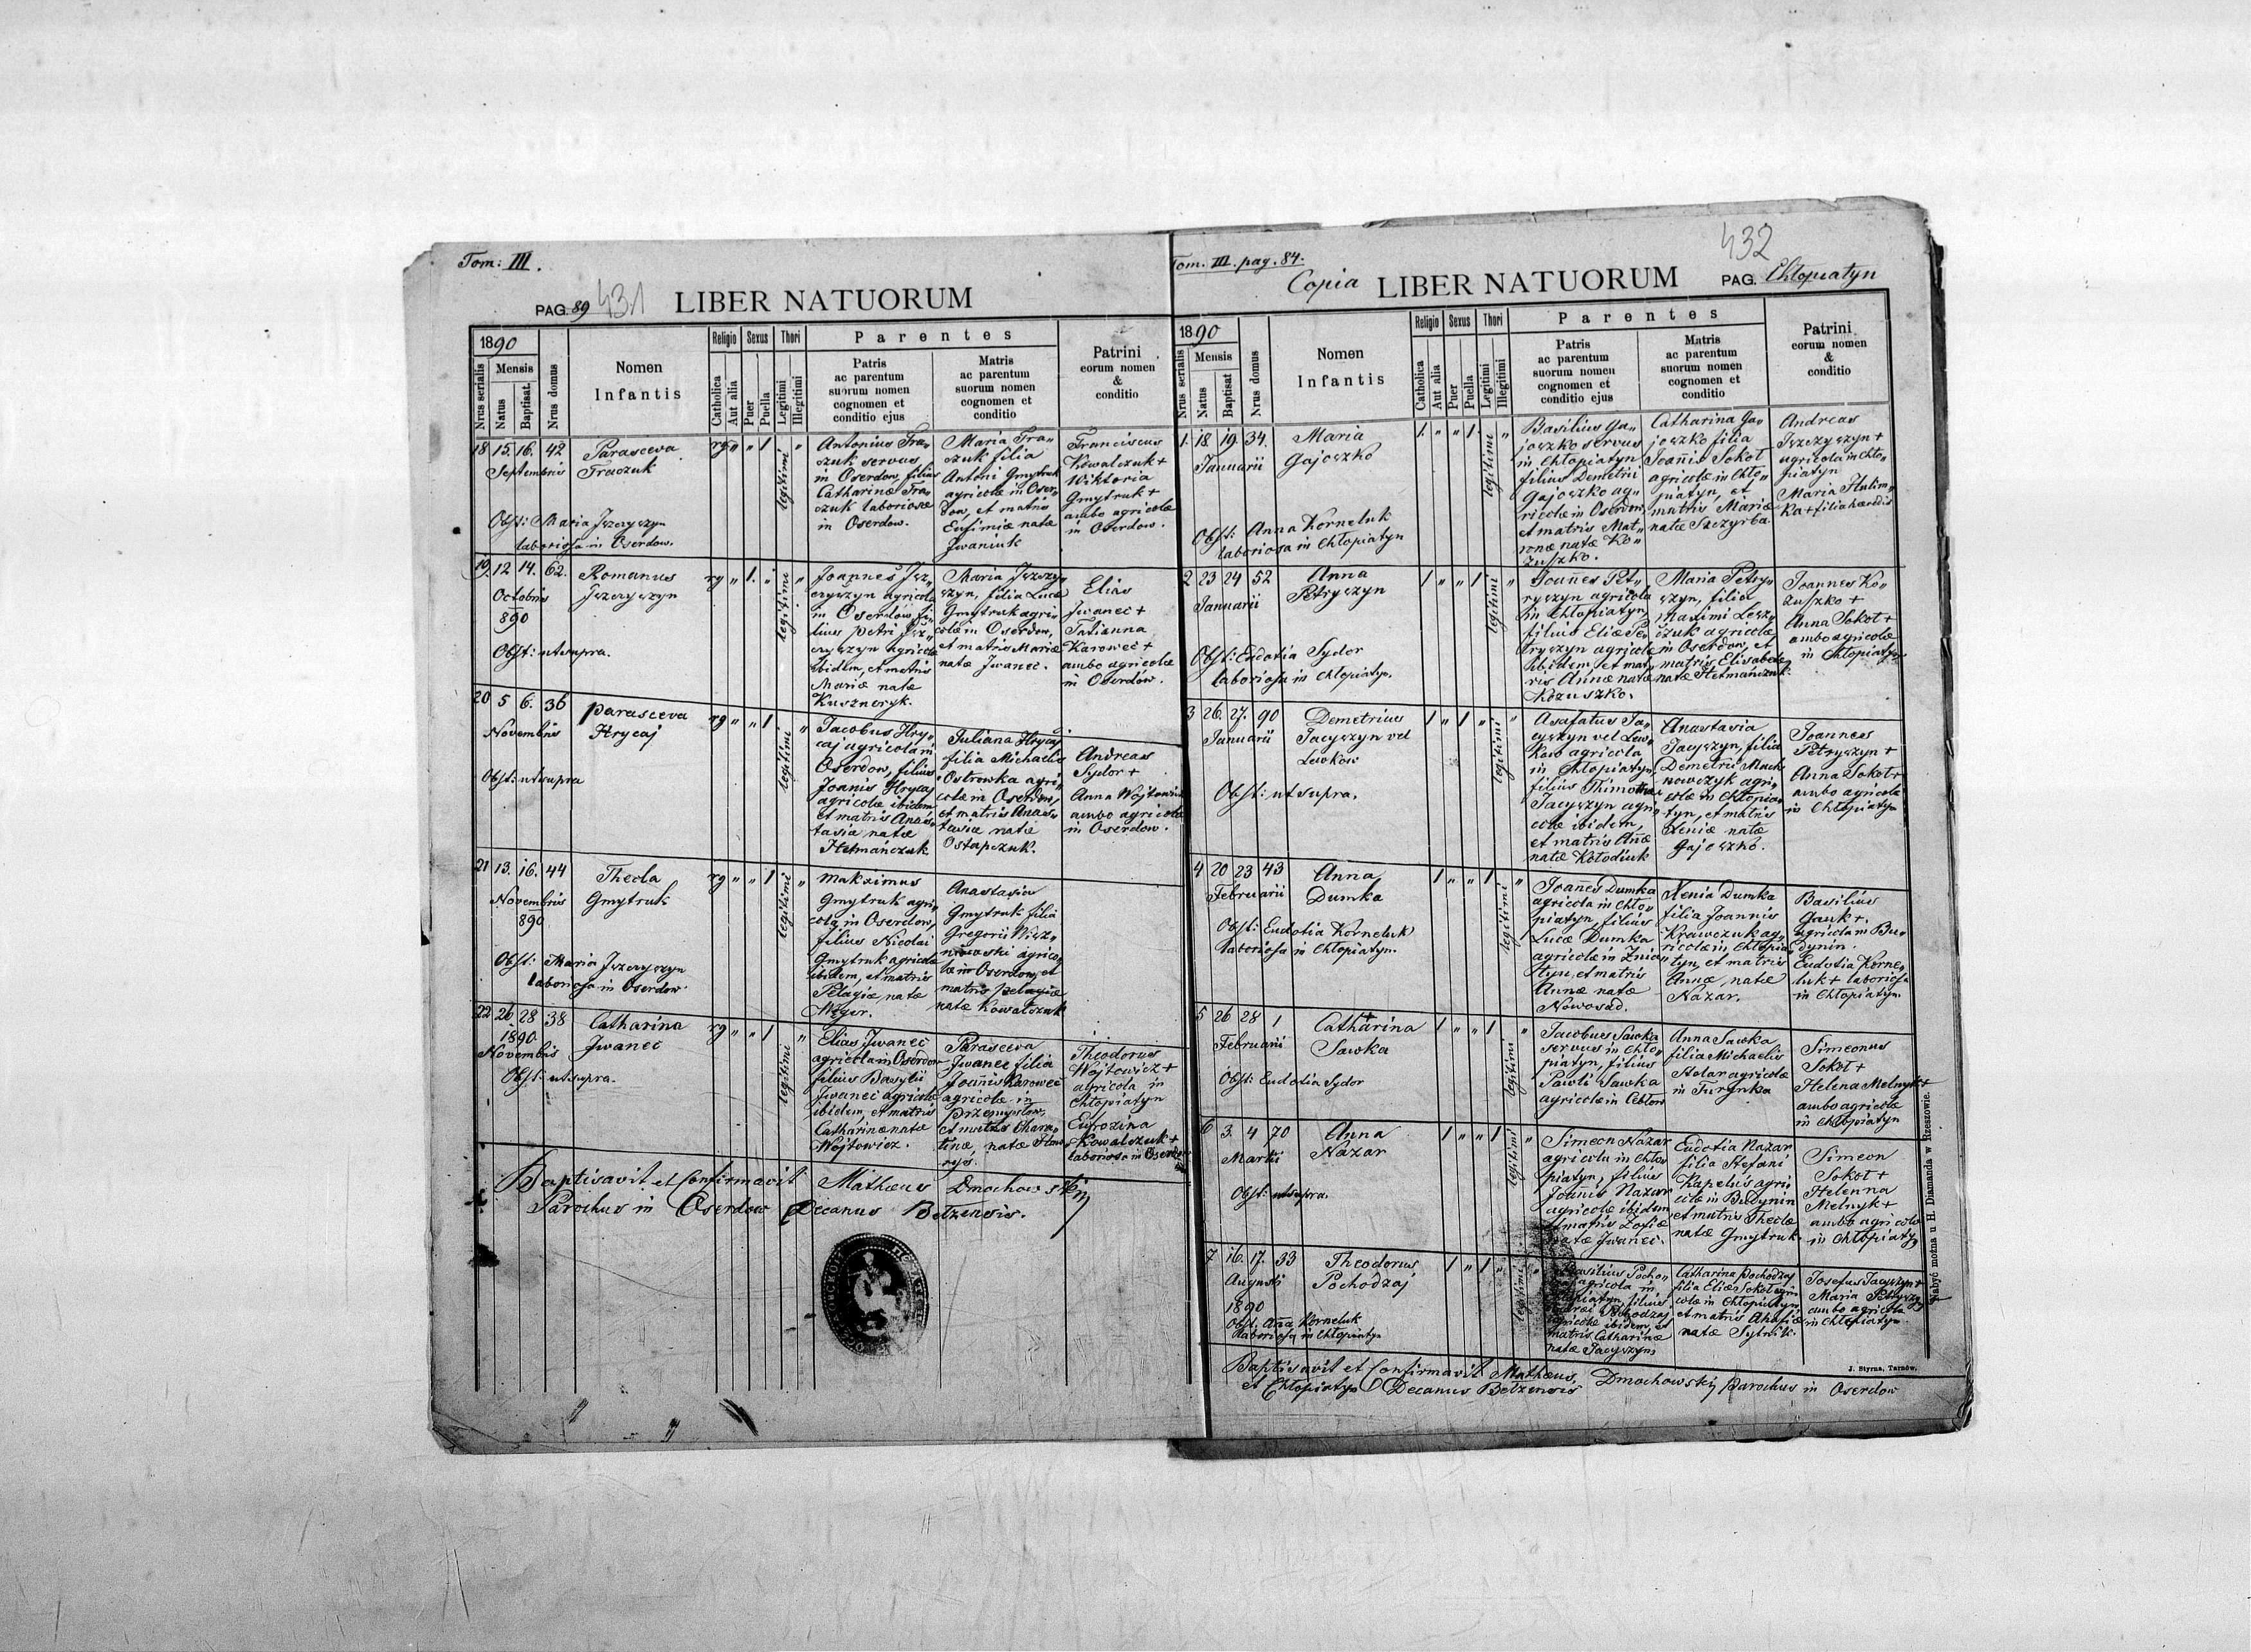 Tom: III.
PAG. 89 431 LIBER NATUORUM
1890
Nrus serialis
Mensis
Natus
Baptisat.
Nrus domus
Nomen
Infantis
Religio
Catholica
Aut alia
Sexus
Puer
Puella
Thori
Legitimi
Illegitimi
Parentes
Patris
ac parentum
suorum nomen
cognomen et
conditio ejus
Matris
ac parentum
suorum nomen
cognomen et
conditio
Patrini
eorum nomen
&
conditio
18 15. 16. 42
Septembris
Parasceva
Traczuk
Obst: Maria Jszczyszyn
laboriosa in Oserdow.
rg " " 1 legitimi "
Antonius Tra„
czuk servus
in Oserdow, filius
Catharinæ Tra„
czuk laboriosæ
in Oserdow.
Maria Tra„
czuk filia
Antoni Gmytruk
agricolæ in Oser„
dow, et matris
Eufimiæ natæ
Jwaniuk
Franciscus
Kowalczuk +
Wiktoria
Gmytruk +
ambo agricolæ
in Oserdow.
19. 12 14. 62.
Octobris
890
Romanus
Jszczyszyn
Obst: ut supra.
rg " 1. " legitimi "
Joannes Jsz„
czyszyn agricola
in Oserdów fi„
lius petri Jsz„
czyszyn agricolæ
ibidem, et matris
Mariæ natæ
Kuszneryk.
Maria Jszczy„
szyn, filia Lucæ
Gmytruk agri„
colæ in Oserdow,
et matris Mariæ
natæ Jwanec.
Elias
Jwanec +
Tatianna
Karowec +
ambo agricolæ
in Oserdów.
20 5 6. 36
Novembris
Parasceva
Hrycaj
Obst: ut supra
rg " " 1 legitimi "
Jacobus Hry„
caj agricola in
Oserdow, filius
Joanis Hrycaj
agricolæ ibidem
et matris Anas„
tasia natæ
Hetmańczuk
Juliana Hrycaj
filia Michaelis
Ostrowka agri„
colæ in Oserdow,
et matris Anas„
tasiæ natæ
Ostapczuk.
Andreas
Sydor +
Anna Wojtowicz
ambo agricolæ
in Oserdow.
21 13. 16. 44
Novembris
890
Thecla
Gmytruk
Obst: Maria Jszczyszyn
laboriosa in Oserdow
rg " " 1 legitimi "
Maksimus
Gmytruk agri„
cola in Oserdow,
filius Nicolai
Gmytruk agricolæ
ibidem, et matris
Pelagiæ, natæ
Anastasia
Gmytruk filia
Gregorii Wisz„
niowski agrico„
læ in Oserdow, et
matris pelagiæ
natæ Kowalczuk
22 26 28 38
1890
Novembris
Catharina
Jwanec
Obst: ut supra.
rg " " 1 legitimi "
Elias Jwanec
agricola in Oserdow
filius Basylii
Jwanec agricolæ
ibidem, et matris
Catharinæ natæ
Wojtowicz.
Parasceva
Jwanec filia
Joannis Karowec
agricolæ in
Przemysłow,
et matris Catha„
rinæ natæ
Theodorus
Wojtowicz +
agricola in
Chłopiatyn
Eufrozina
Kowalczuk +
laboriosa in Oserdow
Baptisavit et Confirmavit Mathæus Dmochowskij
Parochus in Oserdow Decanus Bełzensis.
Tom. III. pag. 84.
432
Copia LIBER NATUORUM PAG. Chłopiatyn
1890
Nrus serialis
Mensis
Natus
Baptisat
Nrus domus
Nomen
Infantis
Religio
Catholica
Aut alia
Sexus
Puer
Puella
Thori
Legitimi
Illegitimi
Parentes
Patris
ac parentum
suorum nomen
cognomen et
conditio ejus
Matris
ac parentum
suorum nomen
cognomen et
conditio
Patrini
eorum nomen
&
conditio
1. 18. 19. 34.
Januarii
Maria
Gajoszko
Obst: Anna Korneluk
laboriosa in Chłopiatyn
1. " " 1. legitimi "
Basilius Ga„
joszko servus
in Chłopiatyn
filius Demetrii
Gajoszko ag„
ricolæ in Oserdow,
et matris Mat„
ronæ natæ Ko„
żuszko.
Catharina Ga„
joszko filia
Joannis Sokoł
agricolæ in Chło„
piatyn, et
matris Mariæ
natæ Szczyrba
Andreas
Jszczyszyn +
agricola in Chło„
piatyn
Maria Hulim„
ka + filia hæredis
2 23 24 52
Januarii
Anna
Petryszyn
Obst: Eudotia Sydor
laboriosa in Chłopiatyn.
1 " " 1 legitimi "
Joannes Pet„
ryszyn agricola
in Chłopiatyn,
filius Eliæ Pe„
tryszyn agricolæ
ibidem, et mat„
ris Annæ natæ
Kożuszko.
Maria Petry„
szyn, filia
Maximi Lesz„
czuk agricolæ
in Oserdow, et
matris Elisabetæ
natæ Hetmańczuk.
Joannes Ko„
żuszko +
Anna Sokoł +
ambo agricolæ
in Chłopiatyn
3 26. 27. 90
Januarii
Demetrius
Jacyszyn vel
Lewkow
Obst: ut supra.
1 " 1 " legitimi "
Asafatus Ja„
cyszyn vel Lew„
kow agricola
in Chłopiatyn,
filius Thimothæi
Jacyszyn agri„
colæ ibidem,
et matris Annæ
natæ Kołodiuk
Anastasia
Jacyszyn, filia
Demetrii Mach„
nowczyk agri„
colæ in Chłopia„
tyn, et matris
Xeniæ natæ
Gajoszko.
Joannes
Petryszyn +
Anna Sokoł +
ambo agricolæ
in Chłopiatyn
4 20 23 43
Februarii
Anna
Dumka
Obst: Eudotia Korneluk
laboriosa in Chłopiatyn.
1 " " 1 legitimi "
Joannes Dumka
agricola in Chło„
piatyn, filius
Lucæ Dumka
agricolæ in Żnia„
tyn, et matris
Annæ natæ
Nowosad.
Xenia Dumka
filia Joannis
Krawczuk ag„
ricolæ in Chłopia„
tyn, et matris
Annæ, natæ
Nazar.
Basilius
Gauk +.
agricola in Bu„
dynin.
Eudotia Korne„
luk + laboriosa
in Chłopiatyn.
5 26 28 1
Februarii
Catharina
Sawka
Obst: Eudotia Sydor
1 " " 1 legitimi "
Jacobus Sawka
servus in Chło„
piatyn, filius
Pawli Sawka
agricolæ in Cebłow
Anna Sawka
filia Michaelis
Stolar agricolæ
in Turynka
Simeonus
Sokoł +
Helena Melnyk +
ambo agricolæ
in Chłopiatyn
6 3. 4 70
Martii
Anna
Nazar
Obst: ut supra.
1 " " 1 legitimi "
Simeon Nazar
agricola in Chło„
piatyn, filius
Joannis Nazar
agricolæ ibidem
et matris Zofiæ
natæ Jwanec.
Eudotia Nazar
filia Stefani
Kapelus agri„
colæ in Budynin
et matris Theclæ
natæ Gmytruk
Simeon
Sokoł +
Helenna
Melnyk +
ambo agricolæ
in Chłopiatyn
7 16. 17. 33
Augusti
1890
Theodorus
Pochodzaj
Obst. Anna Korneluk
laboriosa in Chłopiatyn
1 " 1 " legitimi "
Basilius Pocho„
agricola in
Chłopiatyn, filius
Pochodzaj
agricolæ ibidem, et
matris Catharinæ
natæ Jacyszyn
Catharina Pochodzaj
filia Eliæ Sokoł agri„
colæ in Chłopiatyn,
et matris Ahafiæ
natæ Sytnik.
Josefus Jacyszyn +
Maria Petryszyn
ambo agricolæ
in Chłopiatyn.
Baptisavit et Confirmavit Mathæus Dmochowskij Parochus in Oserdow
et Chłopiatyn Decanus Bełzensis
J. Styrna, Tarnów.
Nabyć można u H. Diamanda w Rzeszowie.